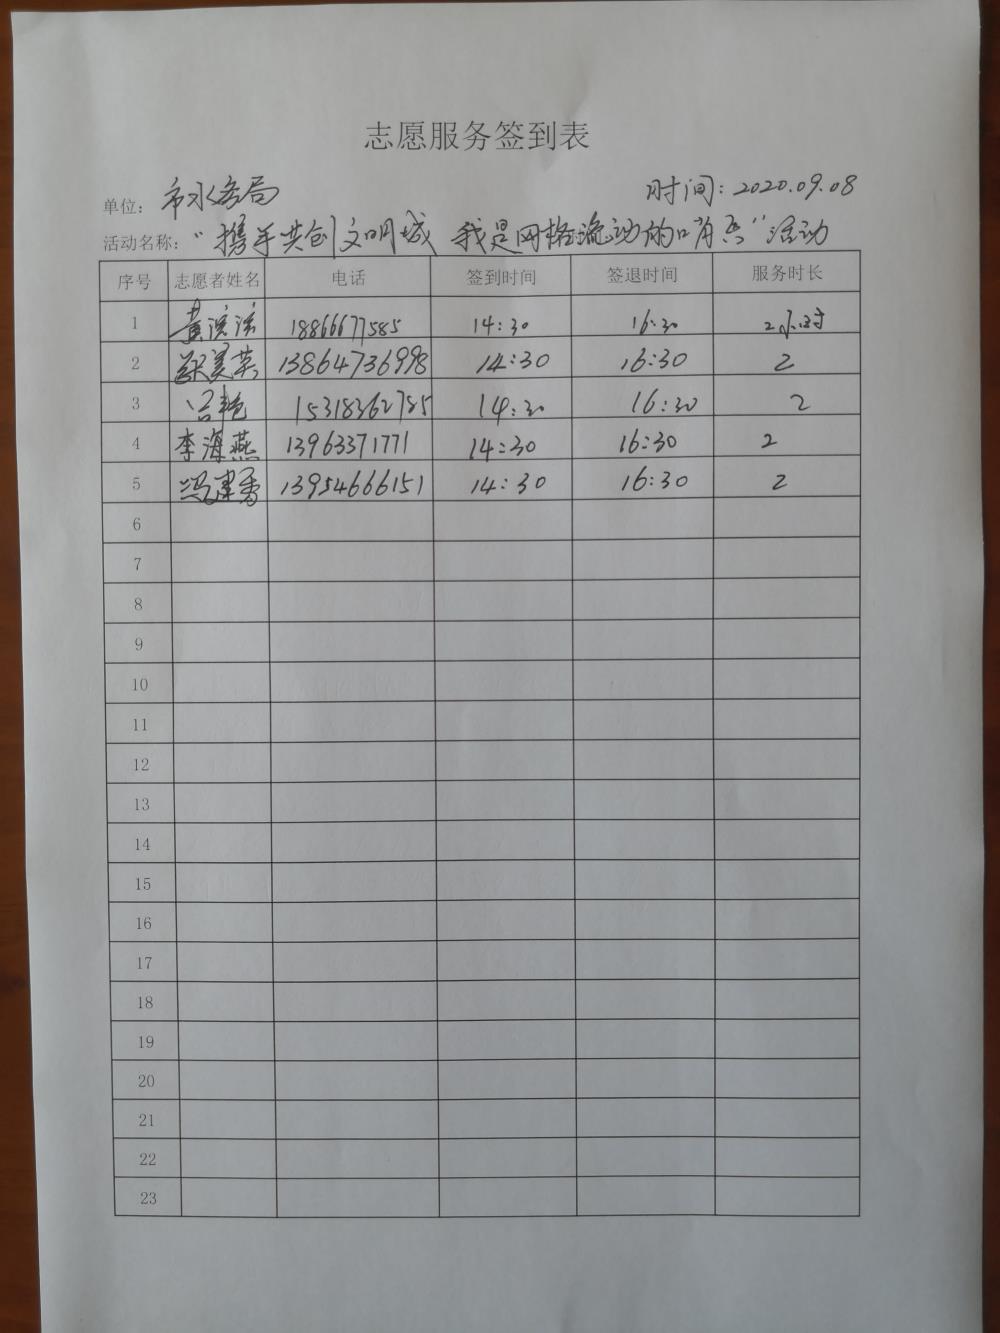 志愿服务签到表
单位: 市水务局 时间: 2020.09.08
活动名称: "携手共创文明城 我是网格流动的哨兵"活动
序号 志愿者姓名 电话 签到时间 签退时间 服务时长
1 黄滨滨 18866677585 14:30 16:30 2小时
2 张美英 13864736998 14:30 16:30 2
3 15318362785 14:30 16:30 2
4 李海燕 13963371771 14:30 16:30 2
5 冯建秀 13954666151 14:30 16:30 2
6
7
8
9
10
11
12
13
14
15
16
17
18
19
20
21
22
23